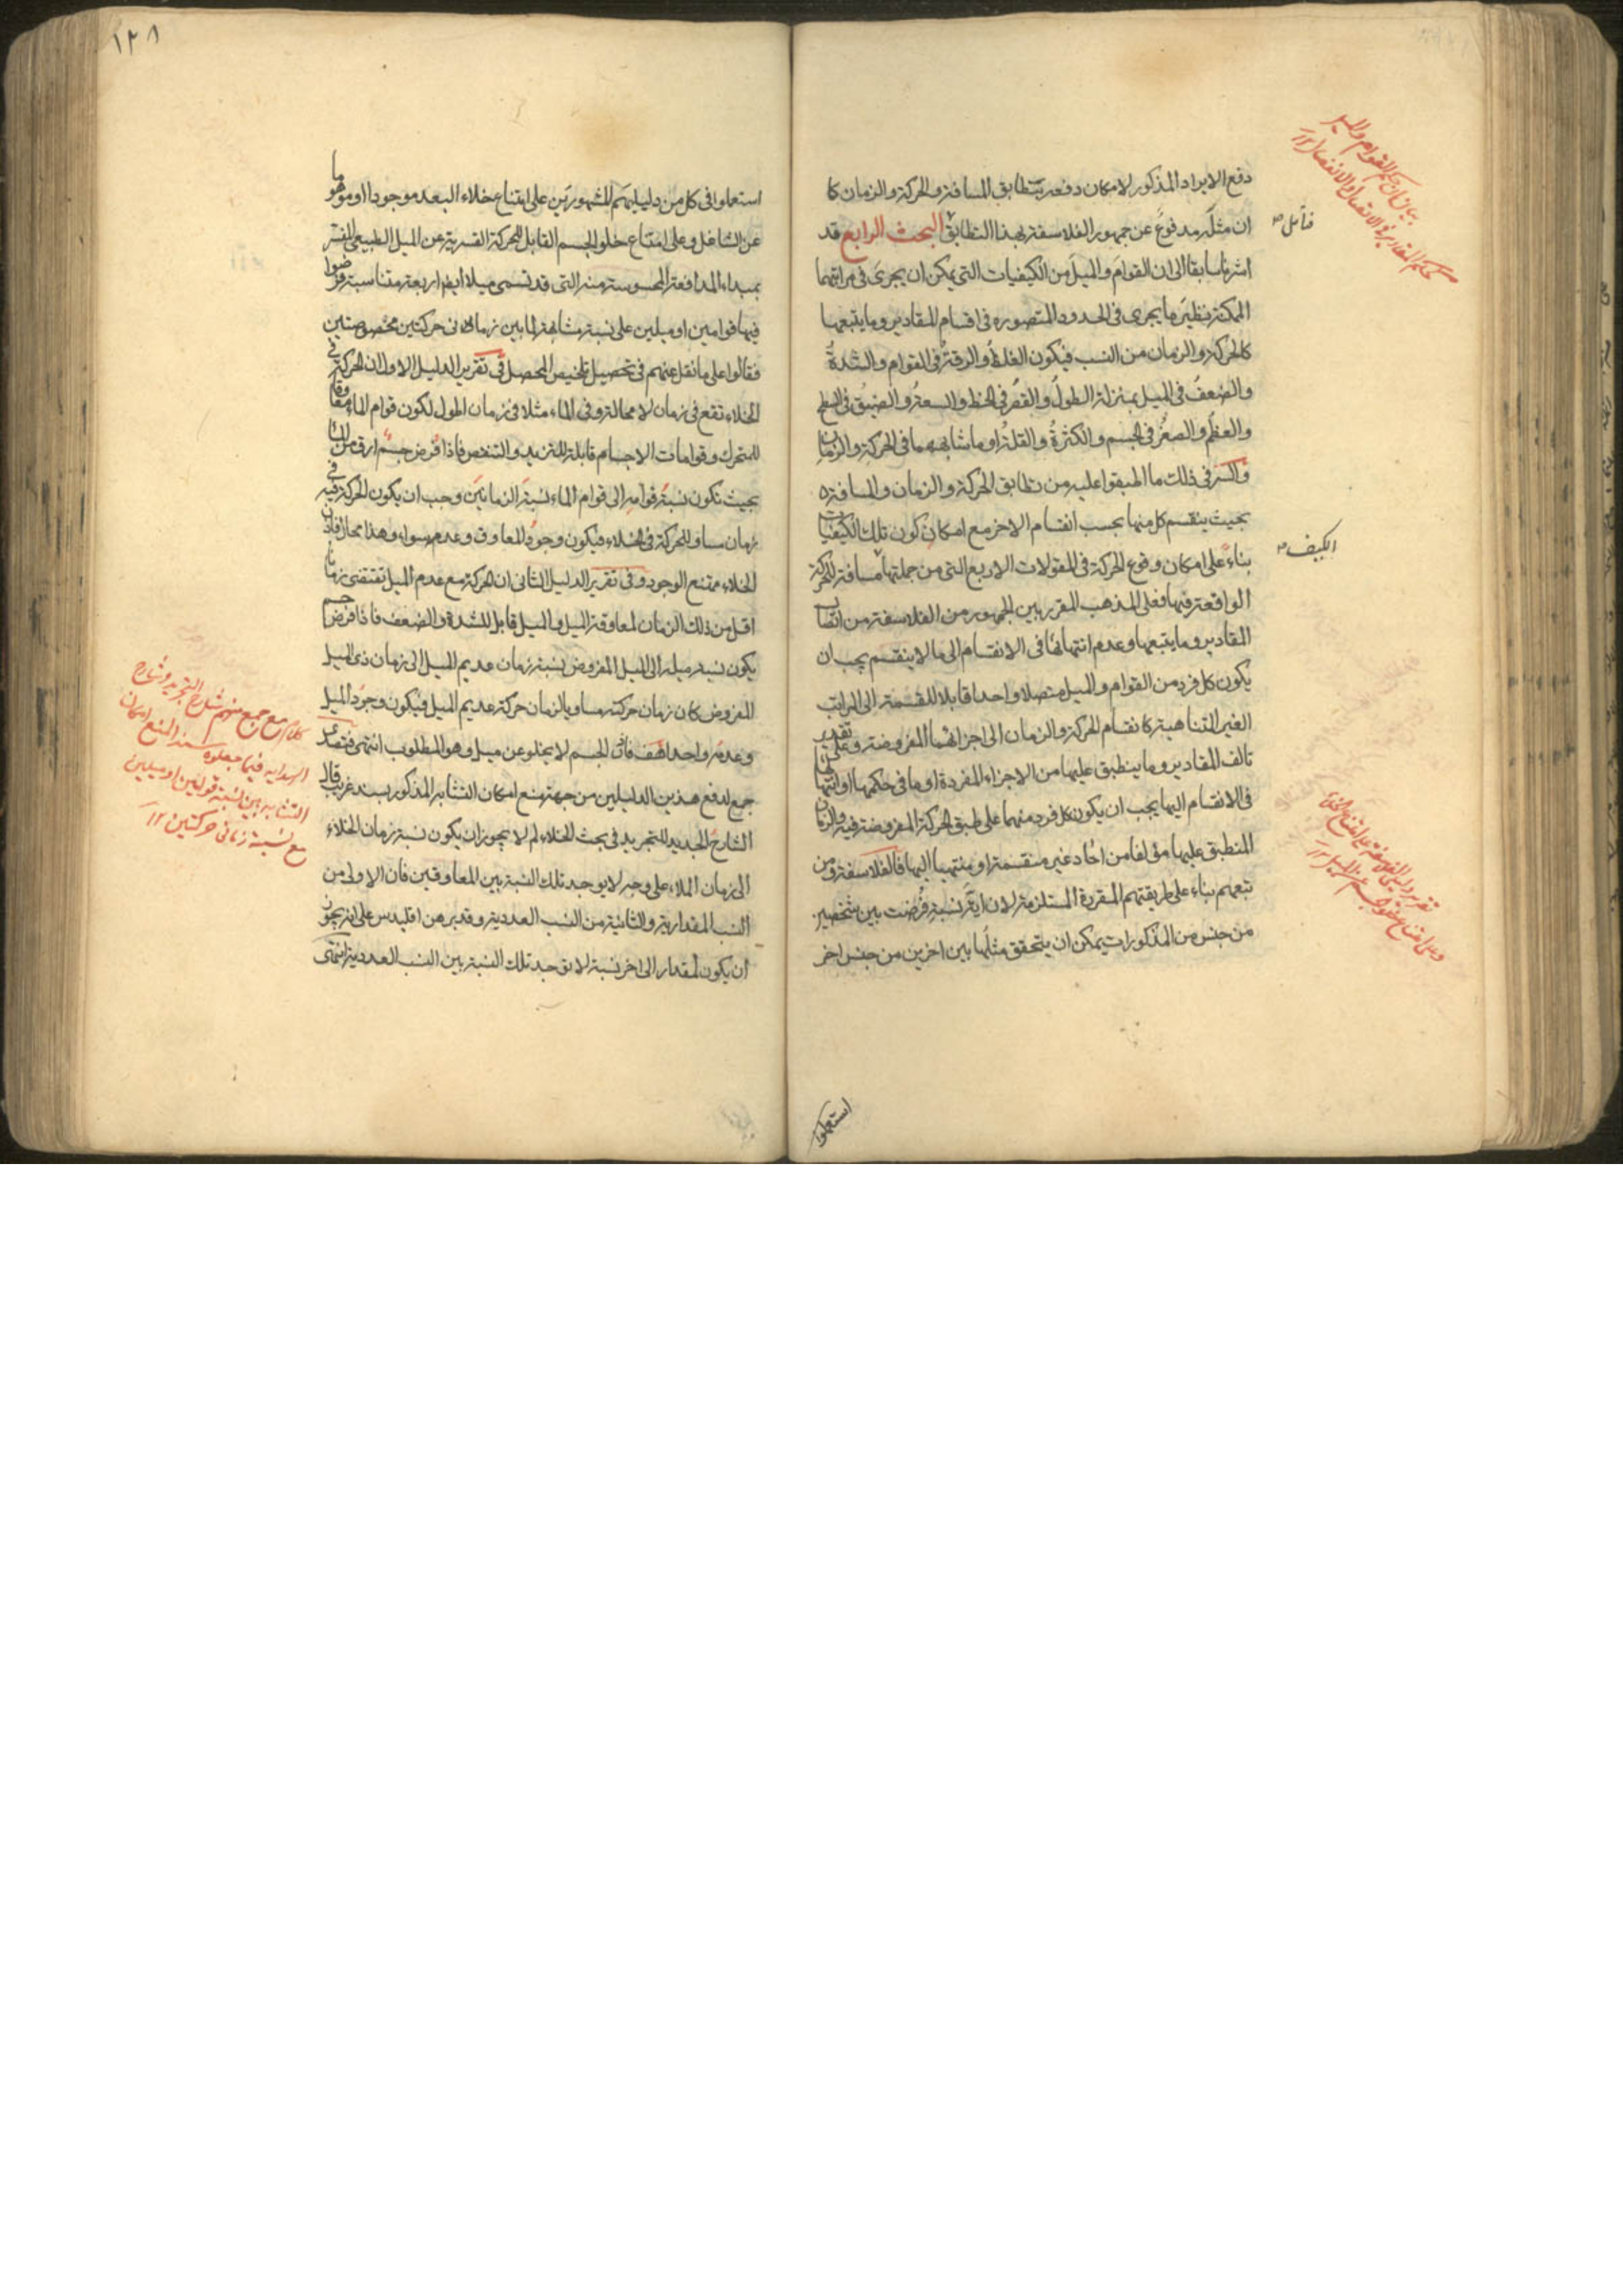 دفع الايراد المذكور لامكان دفعه بتطابق المسافة والحركة والزمان كا
ان مثله مدفوع عن جمهور الفلاسفة بهذا التطابق البحث الرابع قد
اشرنا سابقا الى ان القوام والميل من الكيفيات التي يمكن ان يجرى في مراتبهما
الممكنة نظير ما يجرى في الحدود المتصوره في اقسام المقادير وما يتبعها
كالحركة والزمان من النسب فيكون الغلظ والرقة في القوام والشدة
والضعف في الميل بمنزلة الطول والقصر في الخط والسعة والضيق في السطح
والعظم والصغر في الجسم والكثرة والقلة او ما شابههما في الحركة والزمان
والسر في ذلك ما اطبقوا عليه من تطابق الحركة والزمان والمسافة
بحيث ينقسم كل منها بحسب انقسام الاخر مع امكان كون تلك الكيفيات
بناء على امكان وقوع الحركة في المقولات الاربع التي من جملتها مسافة للحركة
الواقعة فيها فعلى المذهب المقرر بين الجمهور من الفلاسفة من اتصال
المقادير وما يتبعها وعدم انتهائها في الانقسام الى ما لا ينقسم يجب ان
يكون كل فرد من القوام والميل متصلا واحدا قابلا للقسمة الى المراتب
الغير المتناهية كانقسام الحركة والزمان الى اجزائهما المفروضة وعلى تقدير
تالف المقادير وما ينطبق عليها من الاجزاء المفردة او ما في حكمها او انتهائها
في الانقسام اليها يجب ان يكون كل فرد منهما على طبق الحركة المفروضة فيه والزمان
المنطبق عليها مؤلفا من احاد غير منقسمة او منتهيا اليها فالفلاسفة ومن
تبعهم بناء على طريقتهم المقررة المستلزمة لان اية نسبة فرضت بين شخصين
من جنس من المذكورات يمكن ان يتحقق مثلها بين اخرين من جنس اخر
استعملوا
بيان ان حكم القوام والميل
كحكم المقادير في الاتصال والانفصال ١٢
فتامل
الكيف
وعلى امتناع خلو الجسم عن الميل ١٢
١٢٨
استعملوا في كل من دليليهم المشهورين على امتناع خلاء البعد موجودا او موهوما
عن الشاغل وعلى امتناع خلو الجسم القابل للحركة القسرية عن الميل الطبيعي المفسر
بمبداء المدافعة المحسوسة منه التي قد تسمى ميلا ايضا اربعة متناسبة فرضوا
فيها قوامين او ميلين على نسبة مشابهة لما بين زماني حركتين مخصوصتين
فقالوا على ما نقل عنهم في تحصيل تلخيص المحصل في تقرير الدليل الاول ان الحركة في
الخلاء تقع في زمان لا محالة وفي الماء مثلا في زمان اطول لكون قوام الماء معاوقا
للمتحرك وقوامات الاجسام قابلة للتزيد والتنقص فاذا فرض جسم ارق من الماء
بحيث تكون نسبة قوامه الى قوام الماء نسبة الزمانين وجب ان يكون الحركة فيه في
زمان مساو للحركة في الخلاء فيكون وجود المعاوق وعدمه سواء وهذا محال فاذن
الخلاء ممتنع الوجود وفي تقرير الدليل الثاني ان الحركة مع عدم الميل تقتضي زمانا
اقل من ذلك الزمان لمعاوقة الميل والميل قابل للشدة والضعف فاذا فرض جسم
يكون نسبة ميله الى الميل المفروض نسبة زمان عديم الميل الى زمان ذي الميل
المفروض كان زمان حركته مساويا لزمان حركة عديم الميل فيكون وجود الميل
وعدمه واحدا هف فاذن الجسم لا يخلو عن ميل وهو المطلوب انتهى فتصدى
جمع لدفع هذين الدليلين من جهة منع امكان التشابه المذكور بسند غريب قال
الشارح الجديد للتجريد في بحث الخلاء لم لا يجوز ان يكون نسبة زمان الخلاء
الى زمان الملاء على وجه لا يوجد تلك النسبة بين المعاوقين فان الاولى من
النسب المقدارية والثانية من النسب العددية وقد برهن اقليدس على انه يجوز
ان يكون لمقدار الى اخر نسبة لا توجد تلك النسبة بين النسب العددية انتهى
كلام مع جمع منهم شارح التجريد وشارح
الهدايه فيما جعلوه سند المنع امكان
التشابه بين نسبة قوامين او ميلين
مع نسبة زماني حركتين ١٢